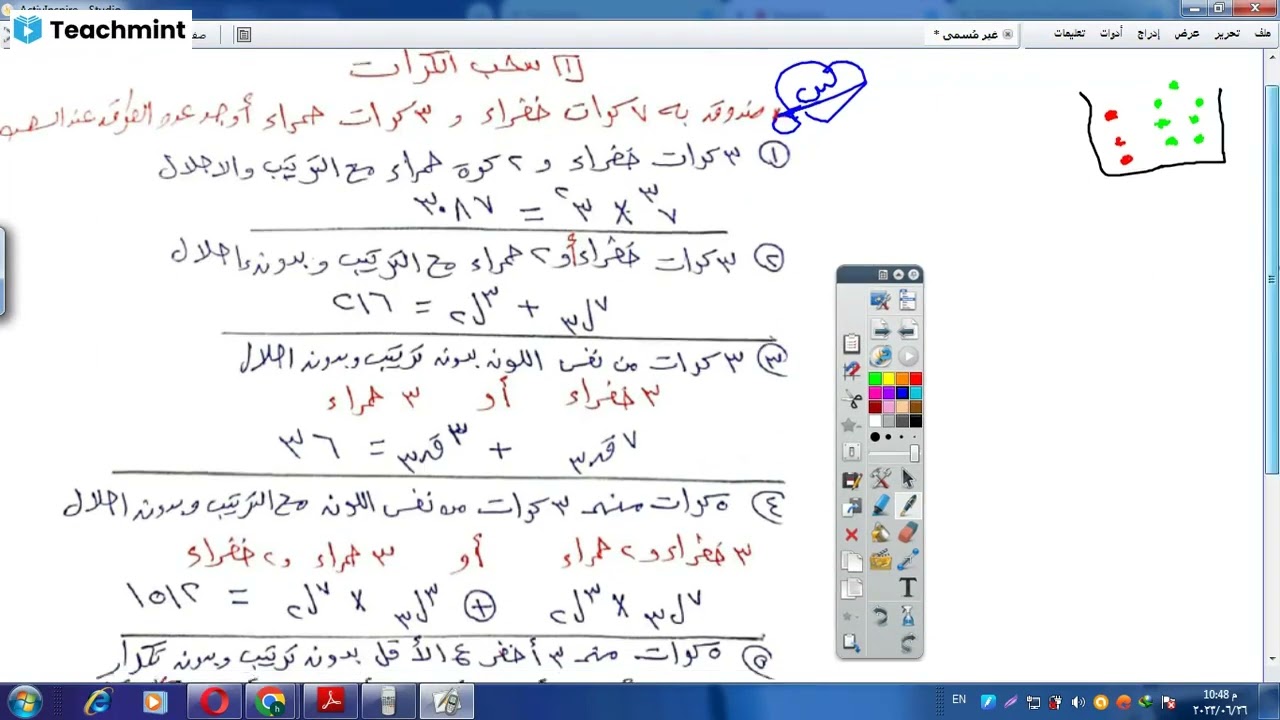 ActivInspire - Studio
Teachmint
ملف تحرير عرض إدراج أدوات تعليمات
غير مُسمى *
١ سحب الكرات
س
صندوق به ٧ كرات خضراء و ٣ كرات حمراء أوجد عدد الطرق عند السحب
١ ٣ كرات خضراء و ٢ كرة حمراء مع الترتيب والاحلال
٧^٣ × ٣^٢ = ٣٠٨٧
٢ ٣ كرات خضراء أو ٢ حمراء مع الترتيب وبدون احلال
٧ل٣ + ٣ل٢ = ٢١٦
٣ ٣ كرات من نفس اللون بدون ترتيب وبدون احلال
٣ خضراء أو ٣ حمراء
٧ق٣ + ٣ق٣ = ٣٦
٤ ٥ كرات منهم ٣ كرات من نفس اللون مع الترتيب وبدون احلال
٣ خضراء و ٢ حمراء أو ٣ حمراء و ٢ خضراء
٧ل٣ × ٣ل٢ + ٣ل٣ × ٧ل٢ = ١٥١٢
٥ ٥ كرات منهم ٣ أخضر ع الأقل بدون ترتيب وبدون تكرار
T
EN
10:48 م
٢٠٢٣/٠٦/٢٦